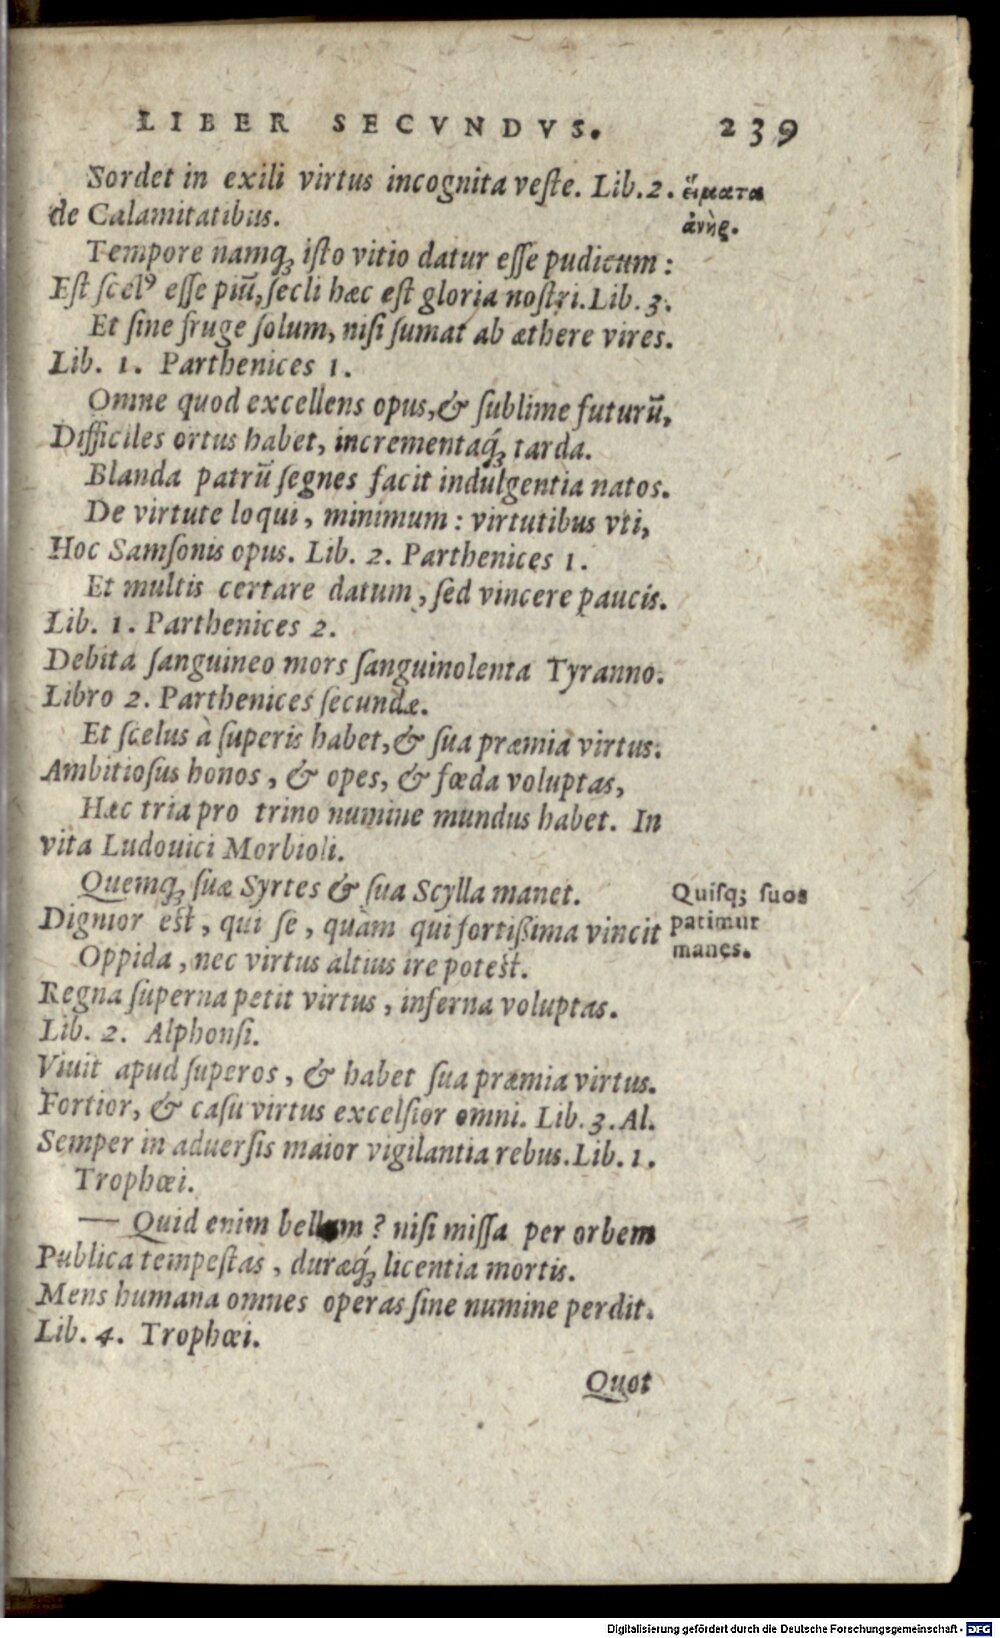 LIBER SECVNDVS. 239
Sordet in exili virtus incognita veſte. Lib.2. εἵματα
de Calamitatibus. ἀνὴρ.
Tempore namq; iſto vitio datur eſſe pudicum:
Eſt ſcelꝰ eſſe piũ, ſecli hæc eſt gloria noſtri. Lib. 3.
Et ſine fruge ſolum, niſi ſumat ab æthere vires.
Lib. 1. Parthenices 1.
Omne quod excellens opus, & ſublime futurũ,
Difficiles ortus habet, incrementaq́; tarda.
Blanda patrũ ſegnes facit indulgentia natos.
De virtute loqui, minimum: virtutibus vti,
Hoc Samſonis opus. Lib. 2. Parthenices 1.
Et multis certare datum, ſed vincere paucis.
Lib. 1. Parthenices 2.
Debita ſanguineo mors ſanguinolenta Tyranno.
Libro 2. Parthenices ſecundæ.
Et ſcelus à ſuperis habet, & ſua præmia virtus.
Ambitioſus honos, & opes, & fœda voluptas,
Hæc tria pro trino numine mundus habet. In
vita Ludouici Morbioli.
Quemq; ſuæ Syrtes & ſua Scylla manet.
Quiſq; ſuos
patimur
manes.
Dignior eſt, qui ſe, quàm qui fortißima vincit
Oppida, nec virtus altius ire poteſt.
Regna ſuperna petit virtus, inferna voluptas.
Lib. 2. Alphonſi.
Viuit apud ſuperos, & habet ſua præmia virtus.
Fortior, & caſu virtus excelſior omni. Lib. 3. Al.
Semper in aduerſis maior vigilantia rebus. Lib. 1.
Trophœi.
— Quid enim bellum? niſi miſſa per orbem
Publica tempeſtas, duræq́; licentia mortis.
Mens humana omnes operas ſine numine perdit.
Lib. 4. Trophœi.
Quot
Digitalisierung gefördert durch die Deutsche Forschungsgemeinschaft - DFG